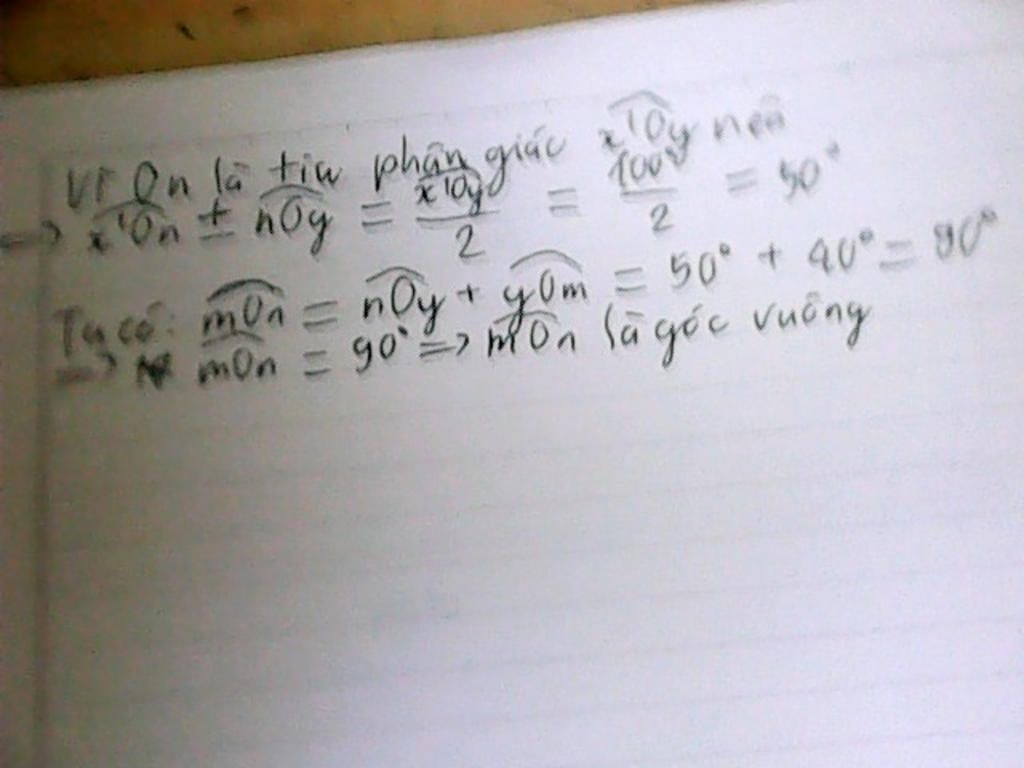 Vì On là tia phân giác x'Oy nên
=> x'On = nOy = x'Oy/2 = 100°/2 = 50°
Ta có: mOn = nOy + yOm = 50° + 40° = 90°
=> mOn = 90° => mOn là góc vuông